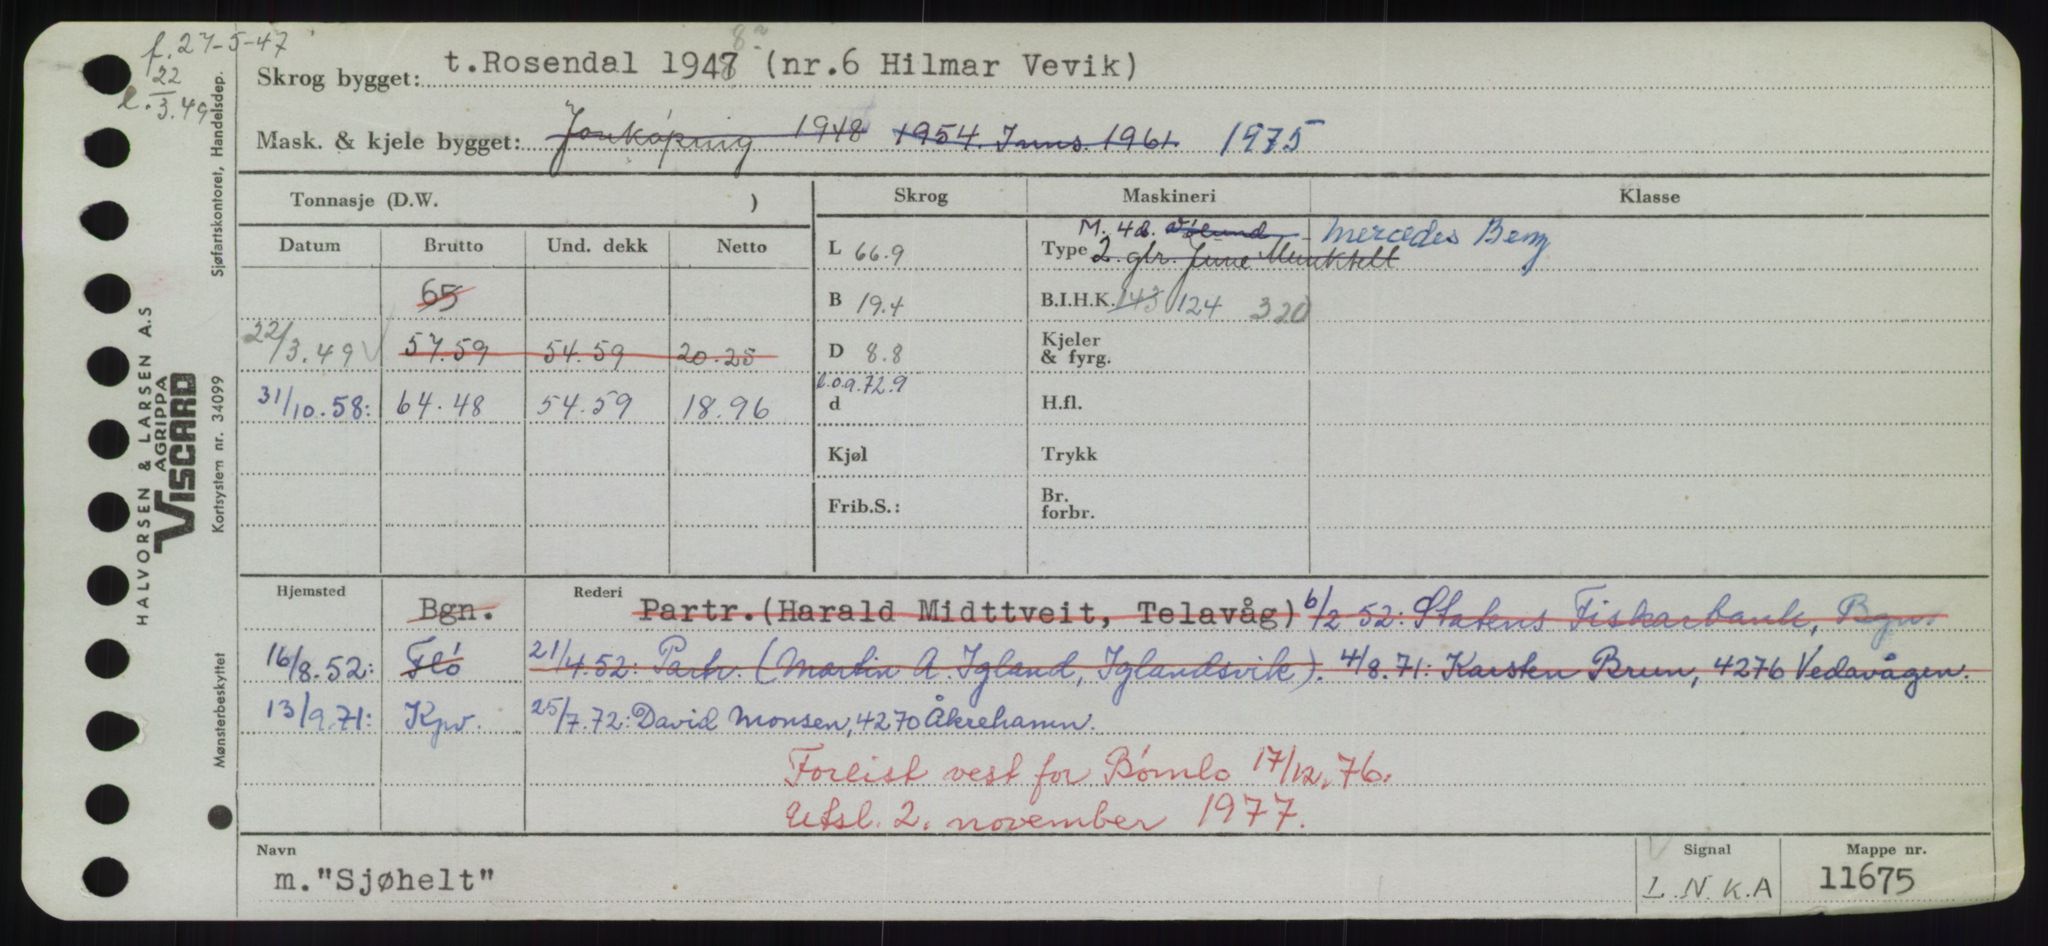 f. 27-5-47
22
l. 3.49
Skrog bygget: t.Rosendal 1948 (nr.6 Hilmar Vevik)
8?
Mask. & kjele bygget: Jonkoping 1948 1954 Inns. 1961. 1975
Tonnasje (D.W. ) Skrog Maskineri Klasse
Datum Brutto Und. dekk Netto
L 66.9
M. 4d. Vølund Mercedes Benz
Type 2. gbr. June Munktell
65
B 19.4
B.I.H.K. 143 124 320
22/3.49 57.59 54.59 20.25
D 8.8
Kjeler & fyrg.
l.o.a. 72.9
31/10.58: 64.48 54.59 18.96
d
H.fl.
Kjøl
Trykk
Frib.S.:
Br. forbr.
Hjemsted Rederi
Bgn. Partr.(Harald Midttveit, Telavåg) 6/2 52: Statens Fiskarbank, Bgn.
16/8.52: Flö 21/4.52: Partr. (Martin A. Igland, Iglandsvik). 4/8.71: Karsten Brun, 4276 Vedavågen.
13/9.71: Kpv. 25/7.72: David Monsen, 4270 Åkrehamn.
Forlist vest for Bömlo 17/12.76.
Utsl. 2. november 1977.
Navn Signal Mappe nr.
m."Sjøhelt" L.N.K.A 11675
Sjøfartskontoret, Handelsdep.
HALVORSEN & LARSEN A.S
AGRIPPA
VISCARD
Kortsystem nr. 34099
Mønsterbeskyttet